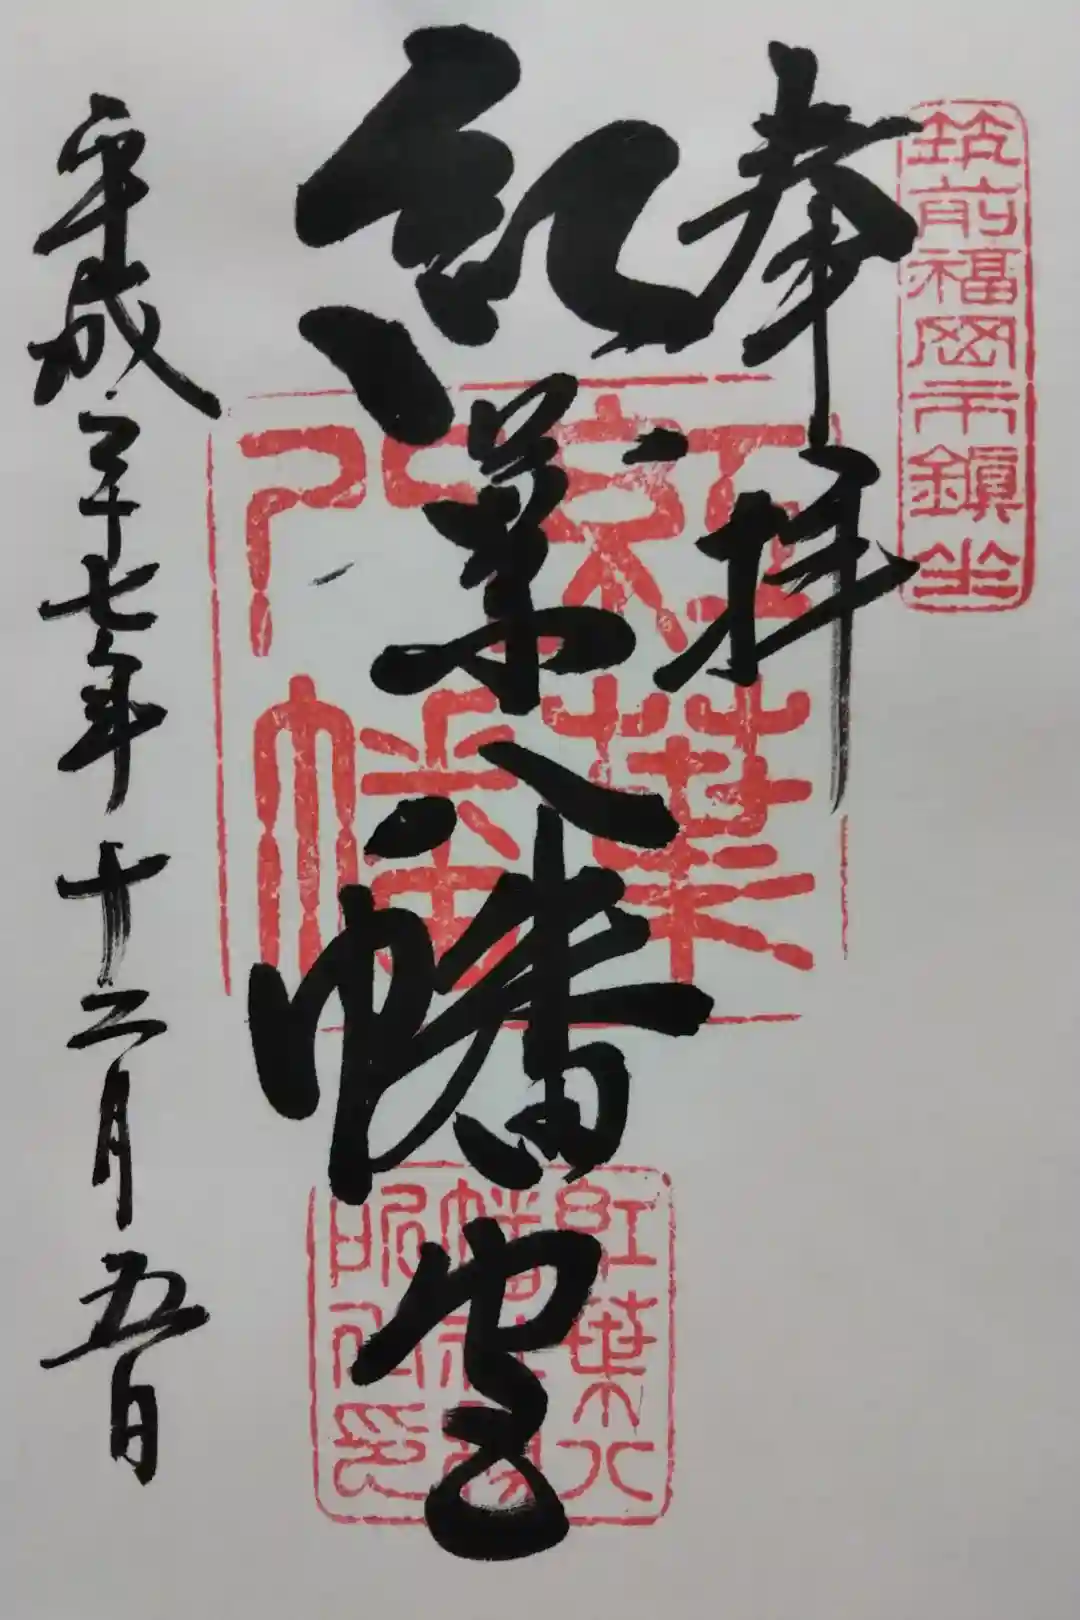 筑前福岡市鎭坐
奉拝
紅葉八幡宮
平成二十七年十二月五日
紅葉
八幡
紅葉八
幡社務
所印